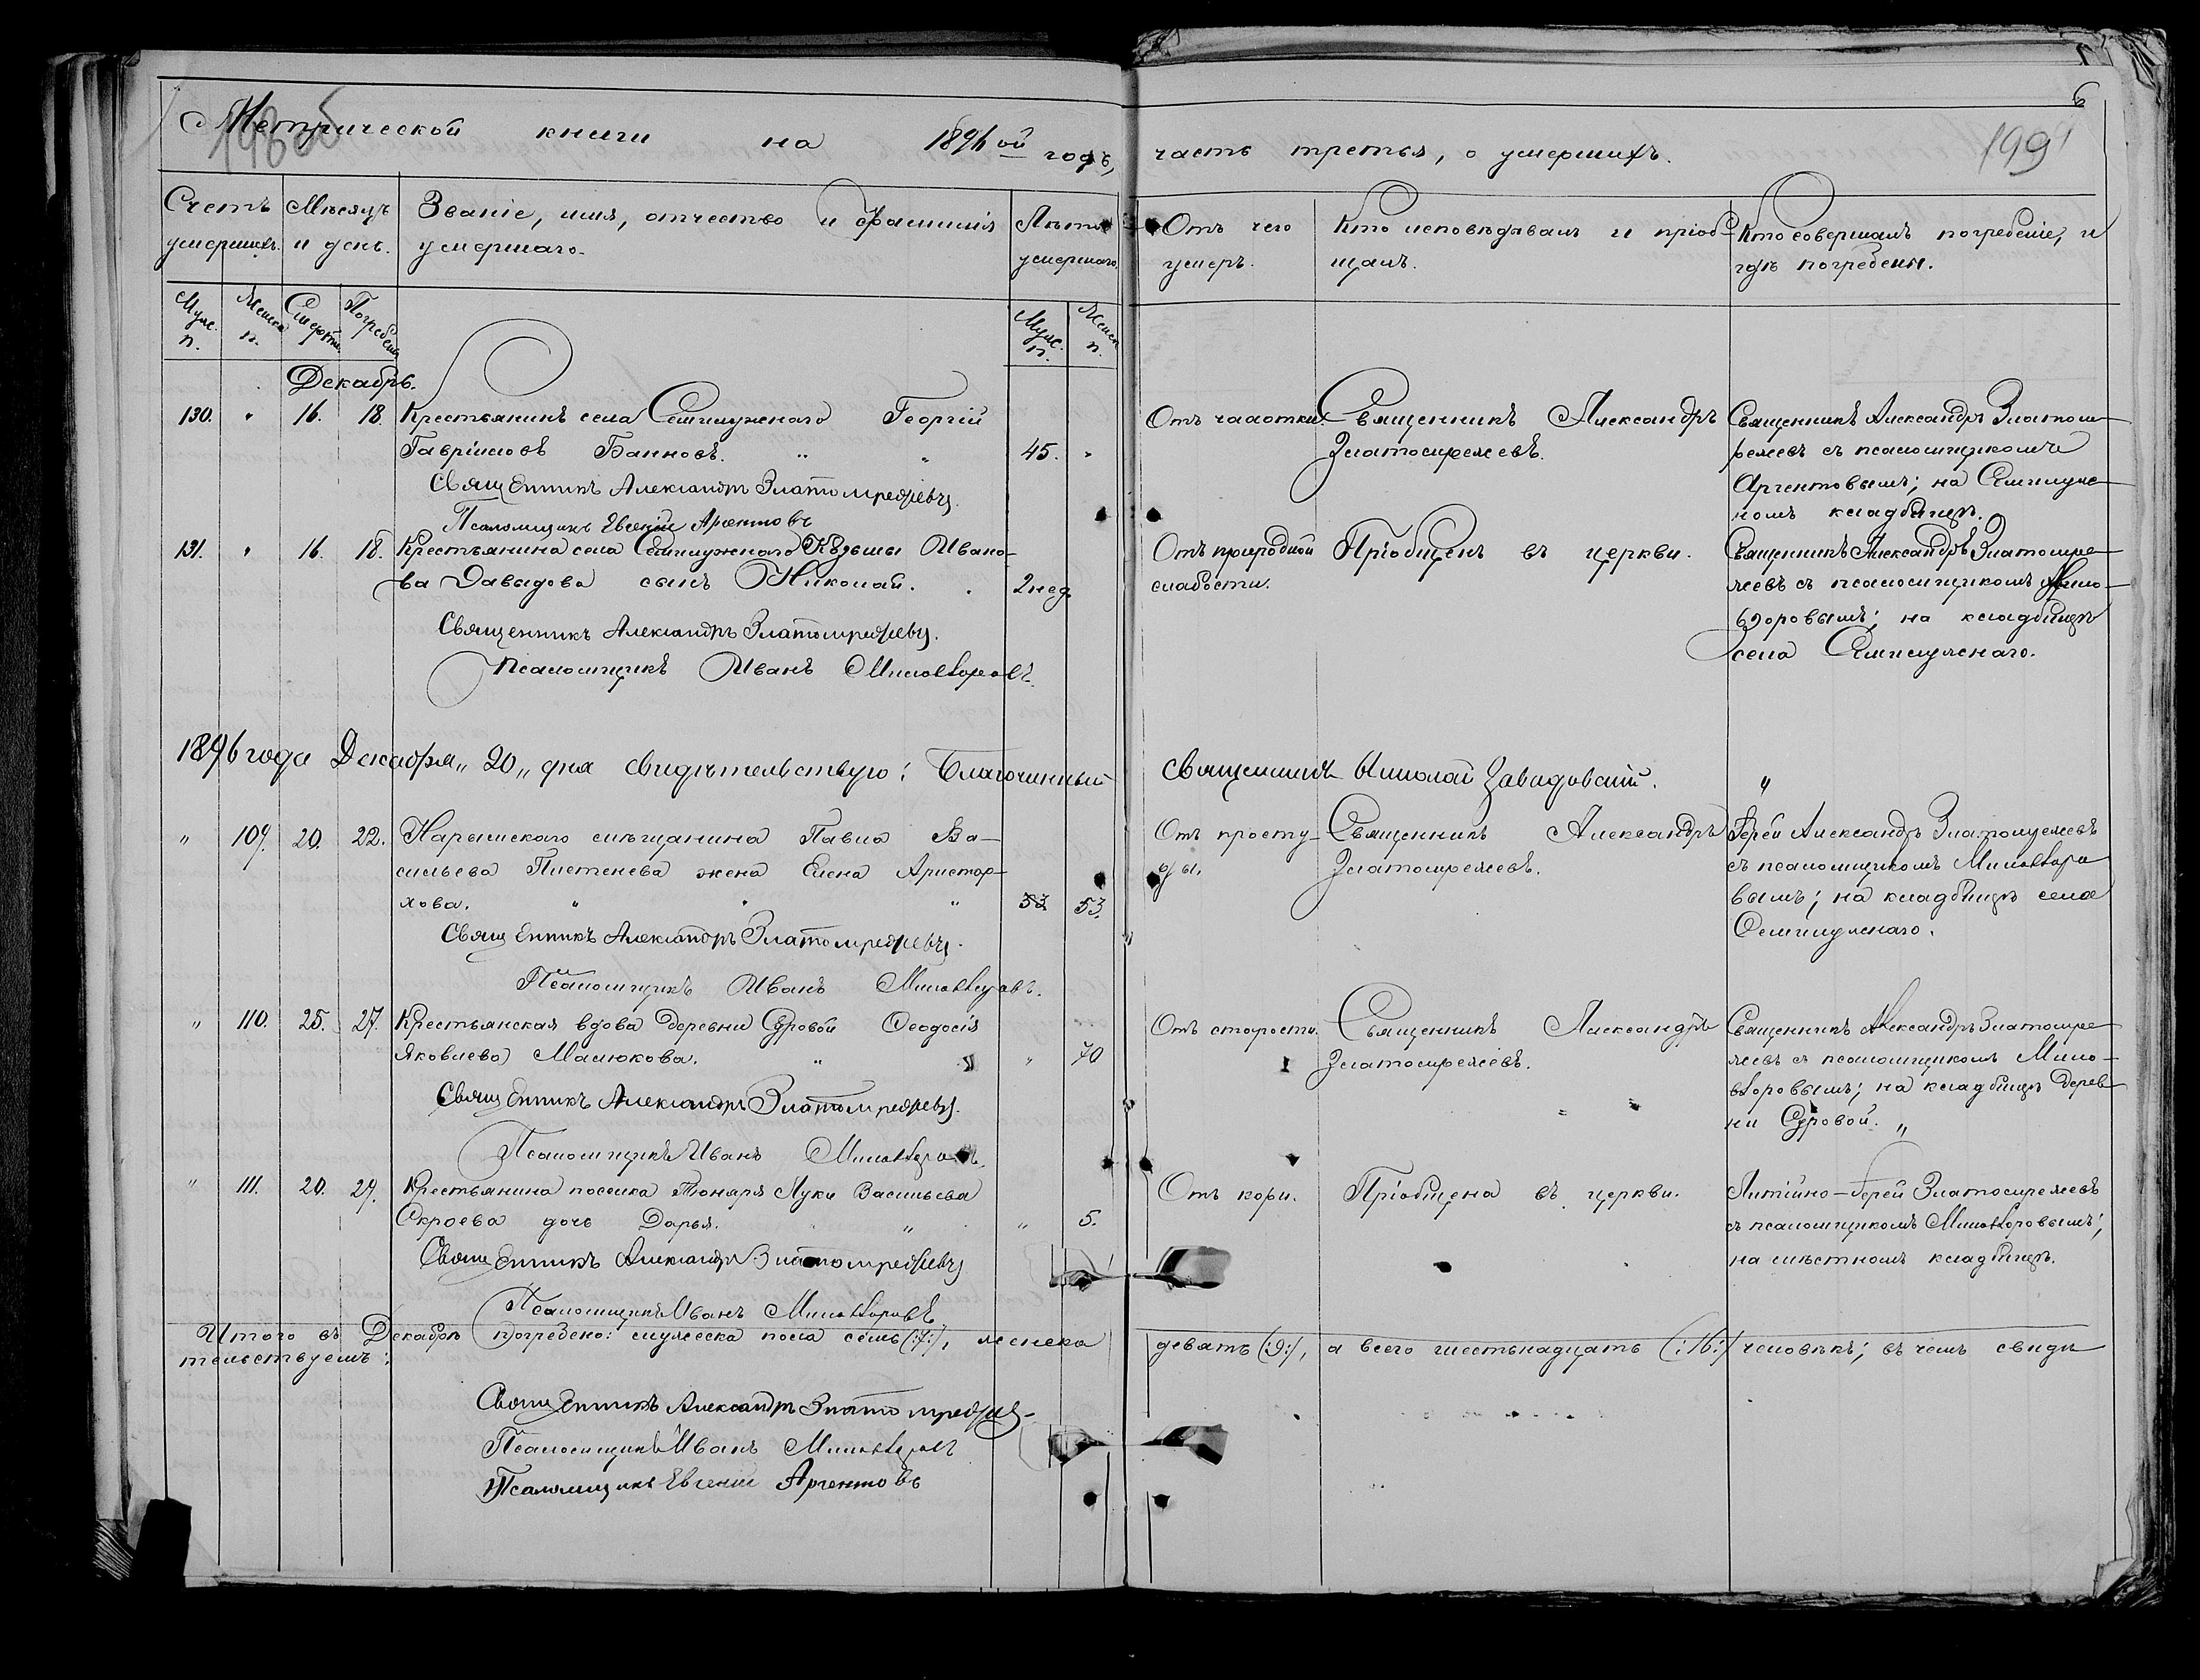 198 об
6
199
Метрической книги на 1896ой годъ,
часть третья, о умершихъ.
Счетъ умершихъ.
Мѣсяцъ и день.
Званіе, имя, отчество и фамилія умершаго.
Лѣта умершаго.
Отъ чего умеръ.
Кто исповѣдывалъ и пріобщалъ.
Кто совершалъ погребеніе, и гдѣ погребены.
Муж. п.
Женск. п.
Смерти.
Погребенія.
Муж. п.
Женск. п.
Декабрь.
130. " 16. 18. Крестьянинъ села Семилужнаго Георгій
Гавріиловъ Банновъ. " " 45. "
Священникъ Александръ Златомрежевъ.
Псаломщикъ Евгеній Аргентовъ
Отъ чахотки.
Священникъ Александръ
Златомрежевъ.
Священникъ Александръ Златом-
режевъ съ псаломщикомъ
Аргентовымъ; на Семилуж-
номъ кладбищѣ.
131. " 16. 18. Крестьянина села Семилужнаго Козьмы Ивано-
ва Давыдова сынъ Николай. 2 нед.
Священникъ Александръ Златомрежевъ.
Псаломщикъ Иванъ Миловзоровъ.
Отъ природной
слабости.
Пріобщенъ въ церкви.
Священникъ Александръ Златомре-
жевъ съ псаломщикомъ Мило-
взоровымъ; на кладбищѣ
села Семилужнаго.
1896 года Декабря „ 20 „ дня свидѣтельствую: Благочинный
священникъ Николай Завадовскій. "
" 109. 20. 22. Нарымскаго мѣщанина Павла Ва-
сильева Плетенева жена Елена Аристар-
хова. " " " 53 53.
Священникъ Александръ Златомрежевъ.
Псаломщикъ Иванъ Миловзоровъ.
Отъ просту-
ды.
Священникъ Александръ
Златомрежевъ.
Іерей Александръ Златомрежевъ
съ псаломщикомъ Миловзоро
вымъ; на кладбищѣ села
Семилужнаго.
" 110. 25. 27. Крестьянская вдова деревни Суровой Ѳеодосія
Яковлева Малюкова. " " " 70
Священникъ Александръ Златомрежевъ.
Псаломщикъ Иванъ Миловзоровъ.
Отъ старости.
Священникъ Александръ
Златомрежевъ.
Священникъ Александръ Златомре-
жевъ съ псаломщикомъ Мило-
взоровымъ; на кладбищѣ дерев-
ни Суровой. "
" 111. 20. 29. Крестьянина поселка Тюнаря Луки Васильева
Окроева дочь Дарья. " " 5.
Священникъ Александръ Златомрежевъ
Псаломщикъ Иванъ Миловзоровъ
Отъ кори.
Пріобщена въ церкви.
Литійно-Іерей Златомрежевъ
съ псаломщикомъ Миловзоровымъ;
на мѣстномъ кладбищѣ.
Итого въ Декабрѣ погребено: мужеска пола семь (:7:), женска
девять (:9:), а всего шестьнадцать (:16:) человѣкъ; въ чемъ свидѣ
тельствуемъ:
Священникъ Александръ Златомрежевъ
Псаломщикъ Иванъ Миловзоровъ
Псаломщикъ Евгеній Аргентовъ